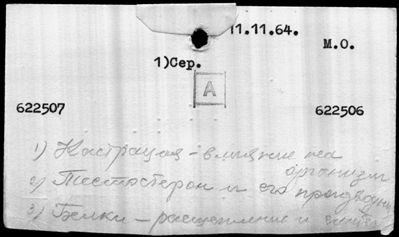 11.11.64.
М.О.
1)Сер.
А
622507
622506
1) Кастрация - влияние на
организм
2) Тестостерон и его производн
3) Белки - расщепление и синтез